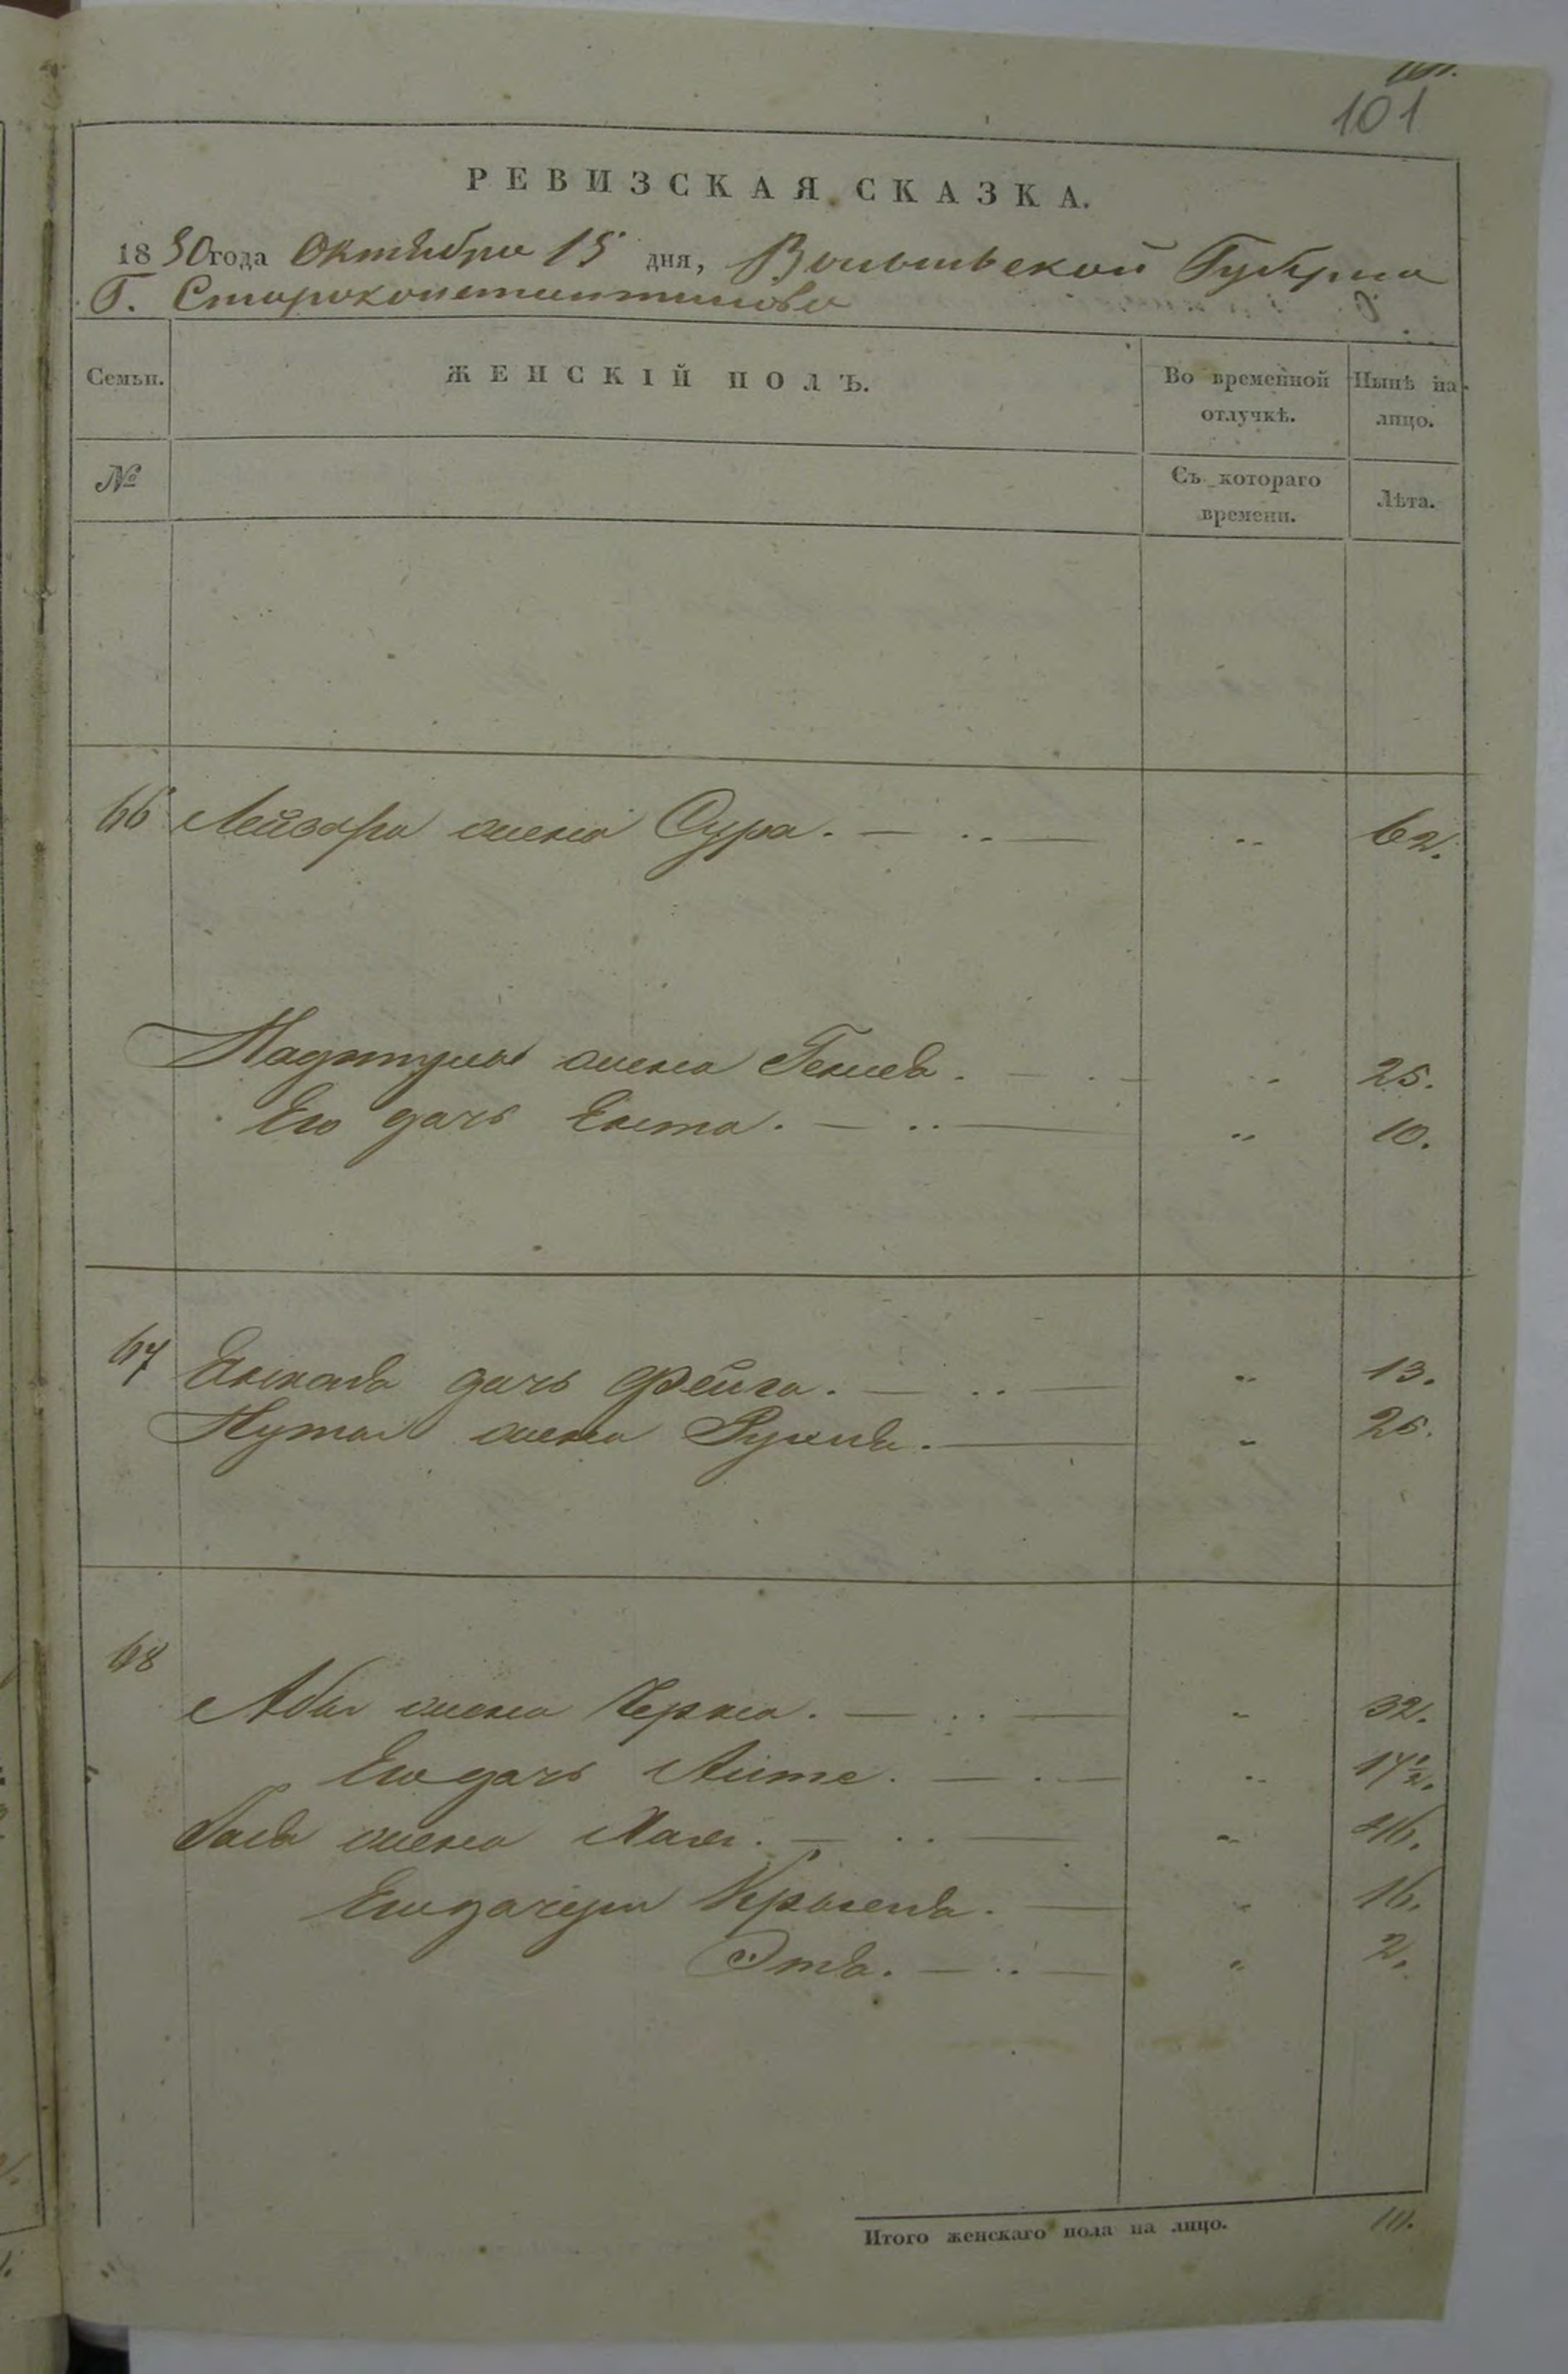 101
РЕВИЗСКАЯ СКАЗКА.
1850 года Октября 15 дня, Волынской Губернии
Г. Староконстантинова
Семьи. ЖЕНСКІЙ ПОЛЪ. Во временной отлучкѣ. Нынѣ на лицо.
№ Съ котораго времени. Лѣта.
66 Лейзора жена Сура. — „ — „ 62.
жена Генея. — „ — „ 25.
Его дочь Еста. — „ — „ 10.
67 дочь Фейга. — „ — „ 13.
жена Рухля. — „ 25.
68
Абы жена Черна. — „ — „ 32.
Его дочь — „ — „
жена Хая. — „ — „ 46.
Его дочери „ 16.
Этя. — „ — „ 2.
Итого женскаго пола на лицо.